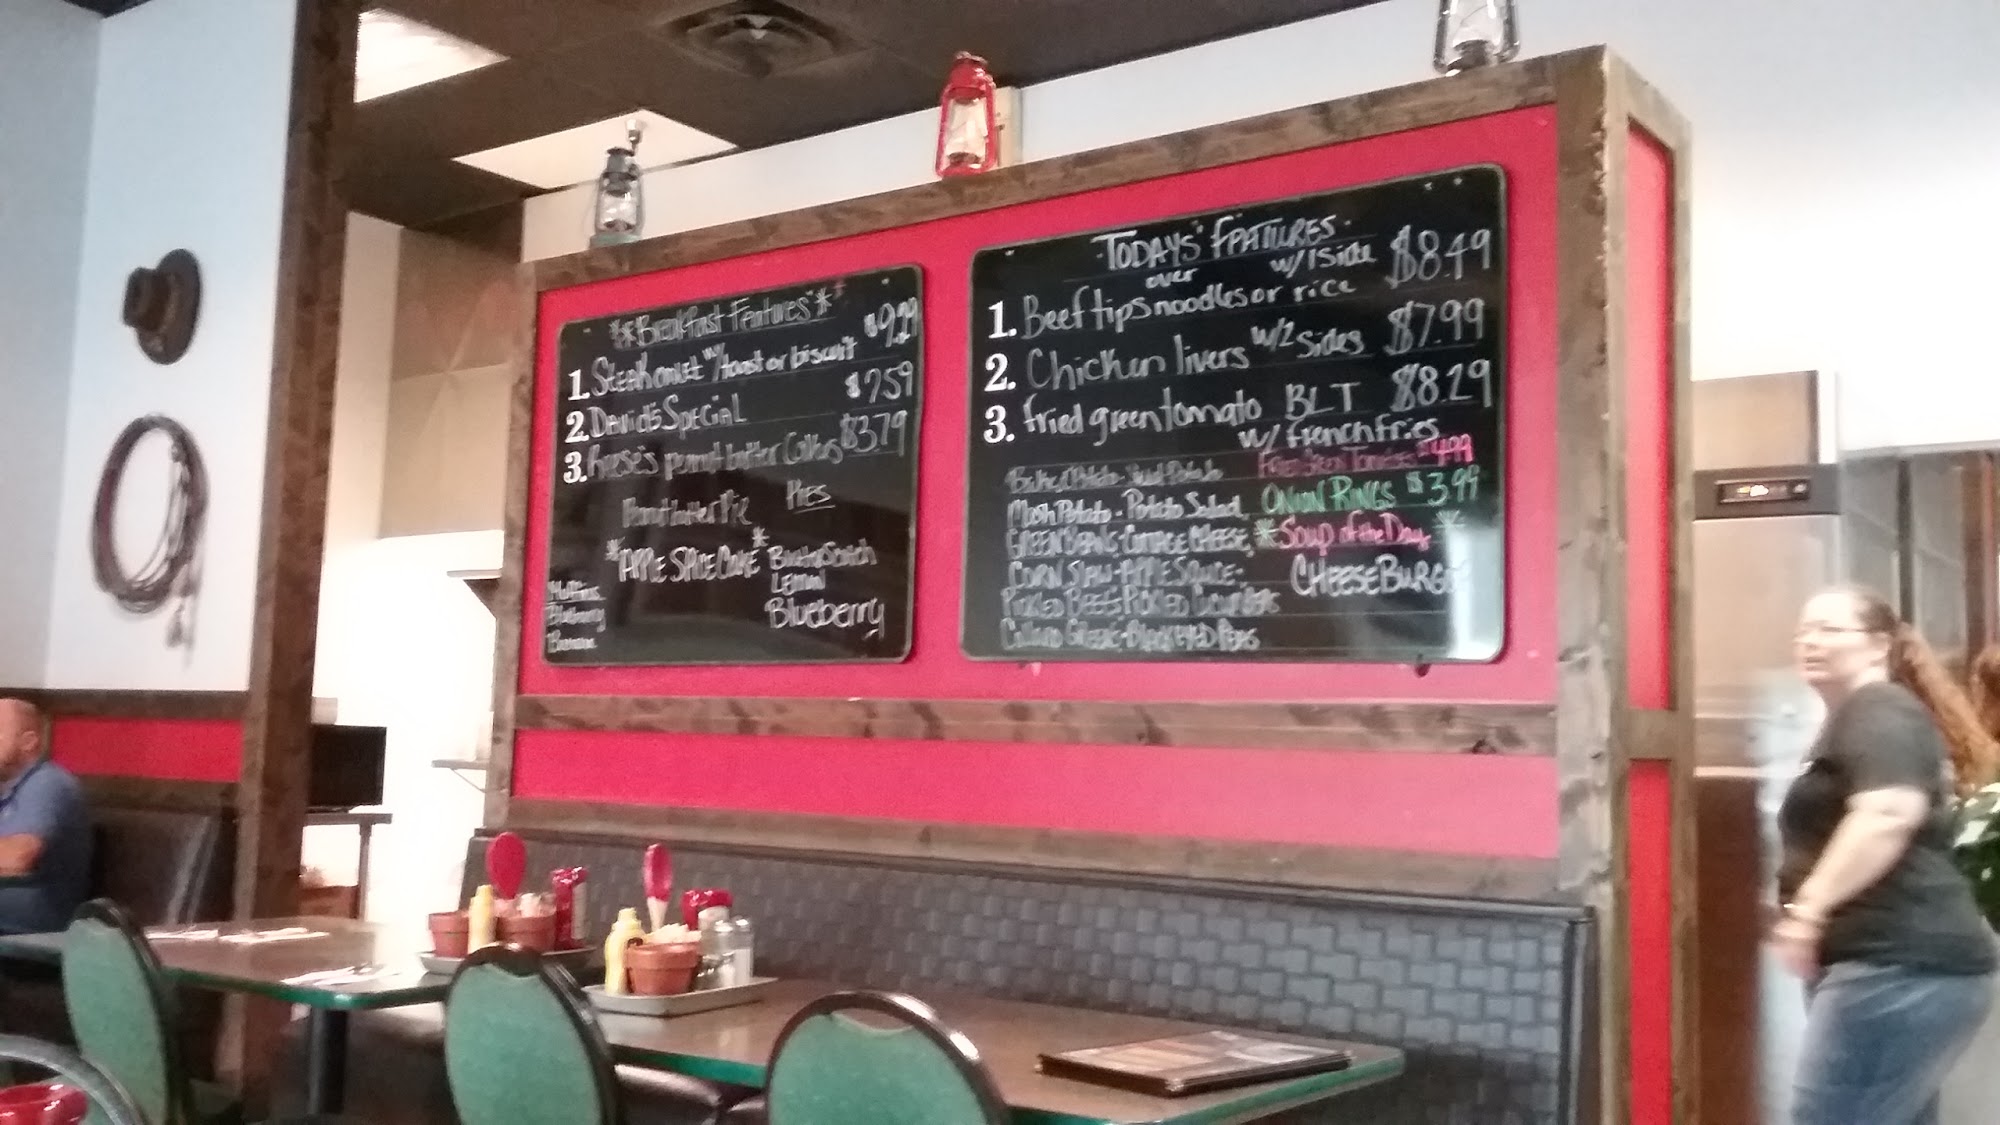 *Breakfast Features*
1. Steak omlet w/ toast or biscuit $9.29
2. David's Special $7.59
3. Reese's peanut butter Cakes $3.79
Peanut butter Pie
*APPLE SPICE CAKE*
Muffins
Blueberry
Banana
PIES
ButterScotch
LEMON
Blueberry
·TODAYS' FEATURES·
1. Beef tips over noodles or rice w/1 side $8.49
2. Chicken livers w/2 sides $7.99
3. fried green tomato BLT $8.29
w/ french fries
Baked Potato - Sweet Potato
Mash Potato - Potato Salad
GREEN BEANS - COTTAGE CHEESE
CORN SLAW - APPLE SAUCE -
PICKLED BEETS PICKLED CUCUMBERS
Collard Greens - BLACK EYED PEAS
Fried Green Tomatoes $4.99
ONION RINGS $3.99
*Soup of the Day*
CHEESEBURGER